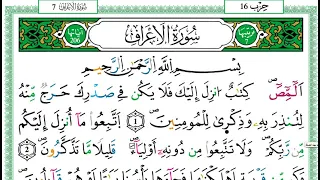 سُورَةُ الأَعْرَافِ 7
حِزْب 16
سُورَةُ الْأَعْرَافِ
206
بِسْمِ اللَّهِ الرَّحْمَٰنِ الرَّحِيمِ
أَلَمِّصَّ كِتَٰبٌ أُنزِلَ إِلَيْكَ فَلَا يَكُن فِي صَدْرِكَ حَرَجٌ مِّنْهُ
لِتُنذِرَ بِهِۦ وَذِكْرَىٰ لِلْمُومِنِينَ 1 اَتَّبِعُوا مَا أُنزِلَ إِلَيْكُم
مِّن رَّبِّكُمْ وَلَا تَتَّبِعُوا مِن دُونِهِۦ أَوْلِيَاءَ قَلِيلًا مَّا تَذَّكَّرُونَ 2